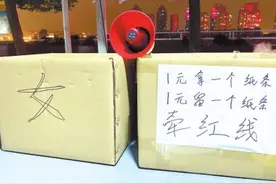 女
1元拿一个纸条
1元留一个纸条
牵红线